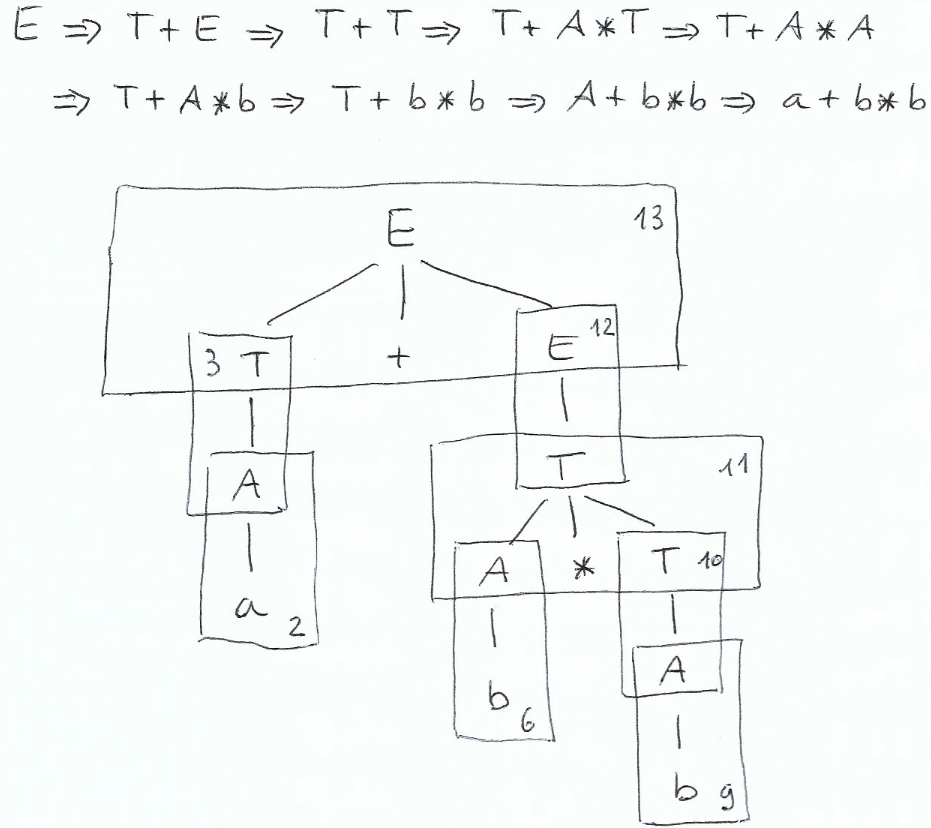 E ⇒ T + E ⇒ T + T ⇒ T + A * T ⇒ T + A * A
⇒ T + A * b ⇒ T + b * b ⇒ A + b * b ⇒ a + b * b
E 13
3 T + E 12
A T 11
a 2 A * T 10
A
b 6
b 9